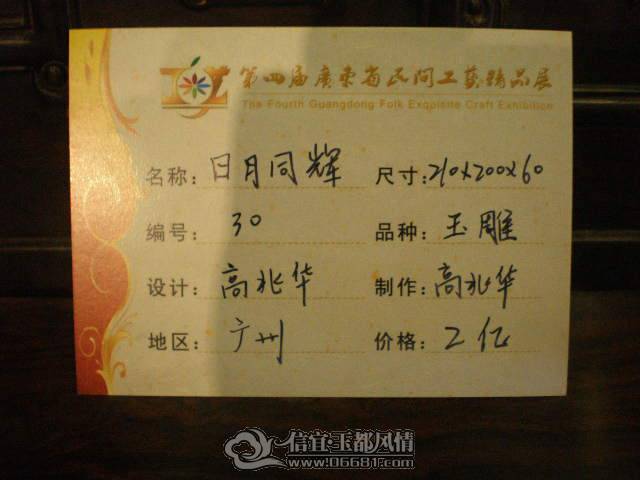 第四届廣東省民间工藝精品展
The Fourth Guangdong Folk Exquisite Craft Exhibition
名称：日月同辉 尺寸：210x200x60
编号：30 品种：玉雕
设计：高兆华 制作：高兆华
地区：广州 价格：2亿
信宜·玉都风情
www.06681.com